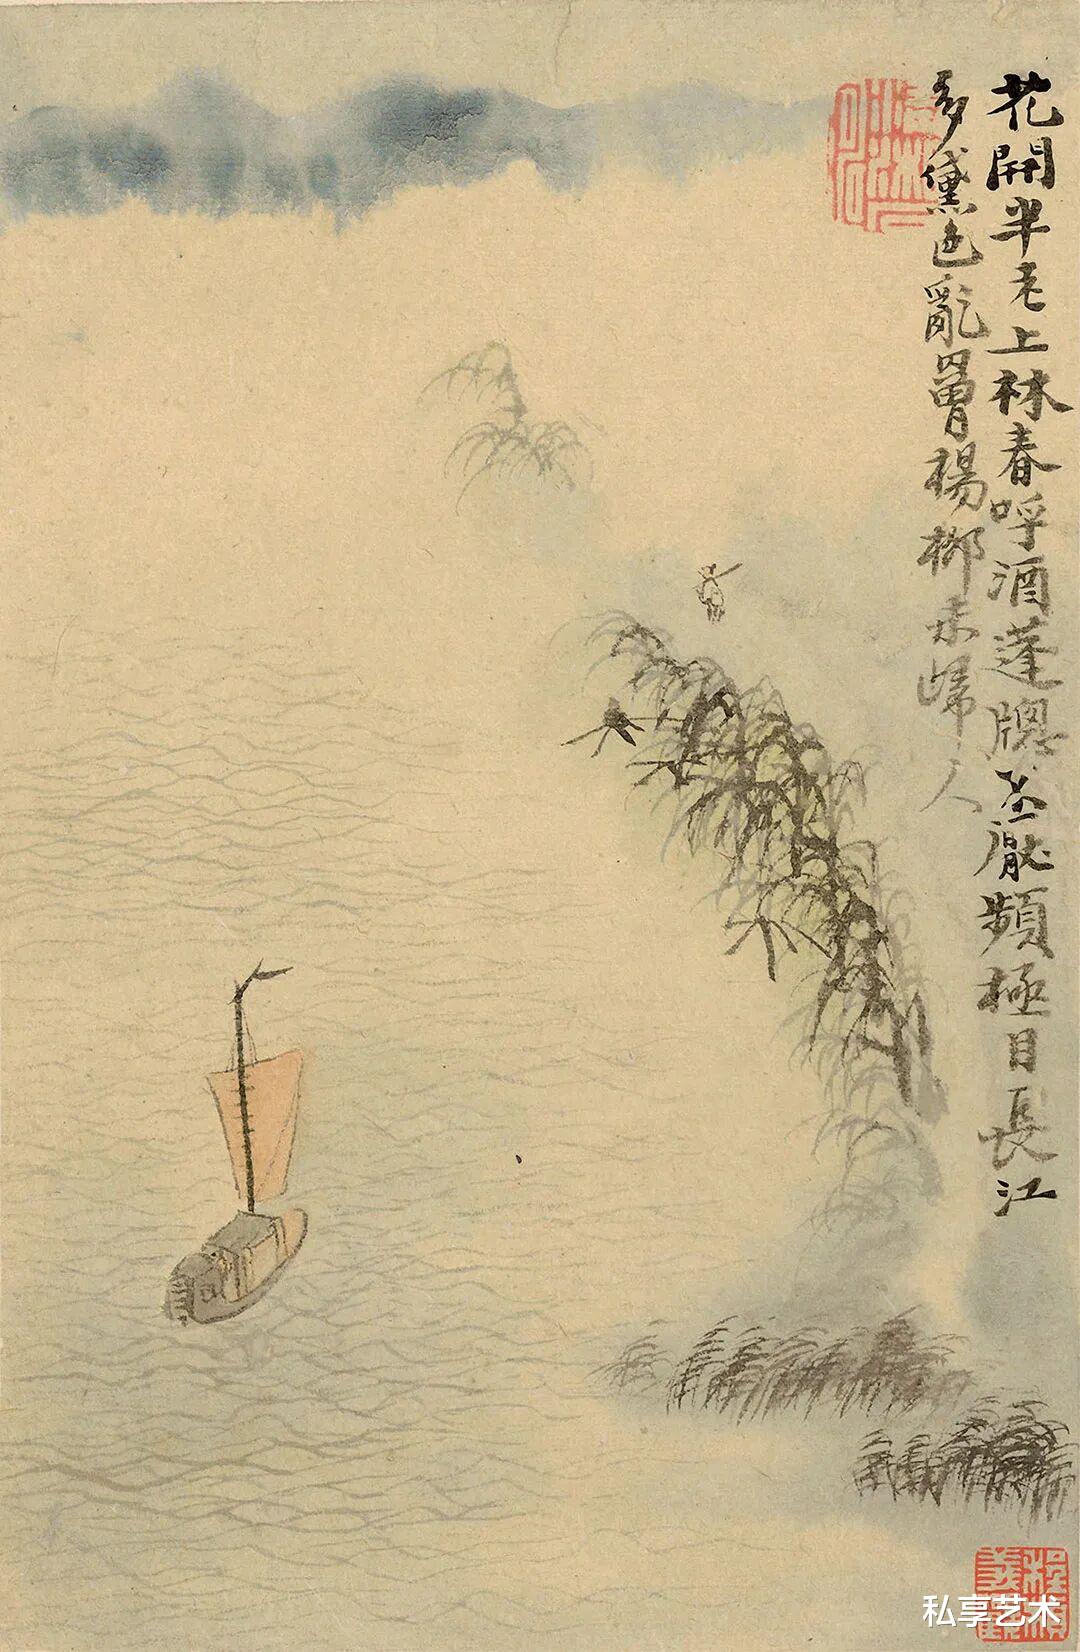 花開半老上林春呼酒蓬牕不厭頻極目長江
多黛色亂罾楊柳未歸人
私享艺术